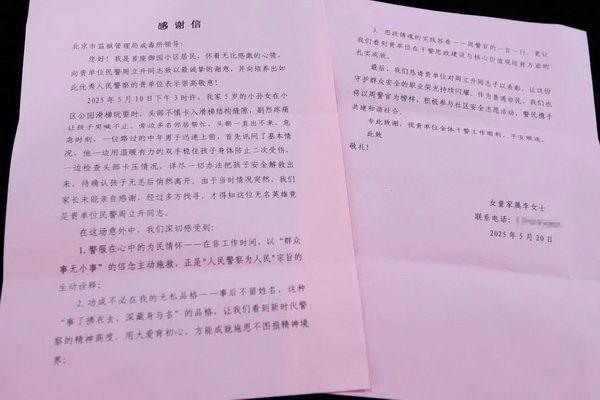 感谢信
北京市监狱管理局戒毒所领导：
您好！我是首座御园小区居民，怀着无比感激的心情，
向贵单位民警周立升同志致以最诚挚的谢意，并向培养出如
此优秀人民警察的贵单位表示崇高敬意！
2025年5月10日下午3时许，我家5岁的小孙女在小
区公园滑梯玩耍时，头部不慎卡入滑梯结构缝隙，剧烈疼痛
让孩子哭喊不止，旁边多名邻居帮忙，头都一直出不来，危
急时刻，一位路过的中年男子迅速上前，首先讯问了基本情
况，他一边用温暖有力的双手稳住孩子身体防止二次受伤，
一边检查头部卡压情况，详尽一切办法把孩子安全解救出
来，待确认孩子无恙后悄然离开，由于当时情况突然，我们
家长未能亲自感谢，经过多方找寻，才得知这位无名英雄竟
是贵单位民警周立升同志。
在这场意外中，我们深切感受到：
1.警服在心中的为民情怀——在非工作时间，以“群众
事无小事”的信念主动施救，正是“人民警察为人民”宗旨的
生动诠释；
2.功成不必在我的无私品格——事后不留姓名，这种
“事了拂衣去，深藏身与名”的品格，让我们看到新时代人民警
察的精神高度，用大爱育初心，方能成就施恩不图报精神境
界；
3.思政铸魂的实践答卷——周警官的一言一行，更让
我们看到贵单位在干警思政建设与核心价值观培育方面的
扎实成效。
最后，我们恳请贵单位对周立升同志予以表彰，让这份
守护群众安全的职业荣光持续闪耀。作为普通市民，我们也
将以周警官为榜样，积极参与社区安全志愿活动，警民携手
共建和谐社会。
专此致谢，祝贵单位全体干警工作顺利，平安顺遂。
此致
敬礼！
女童家属李女士
联系电话：
2025年5月20日